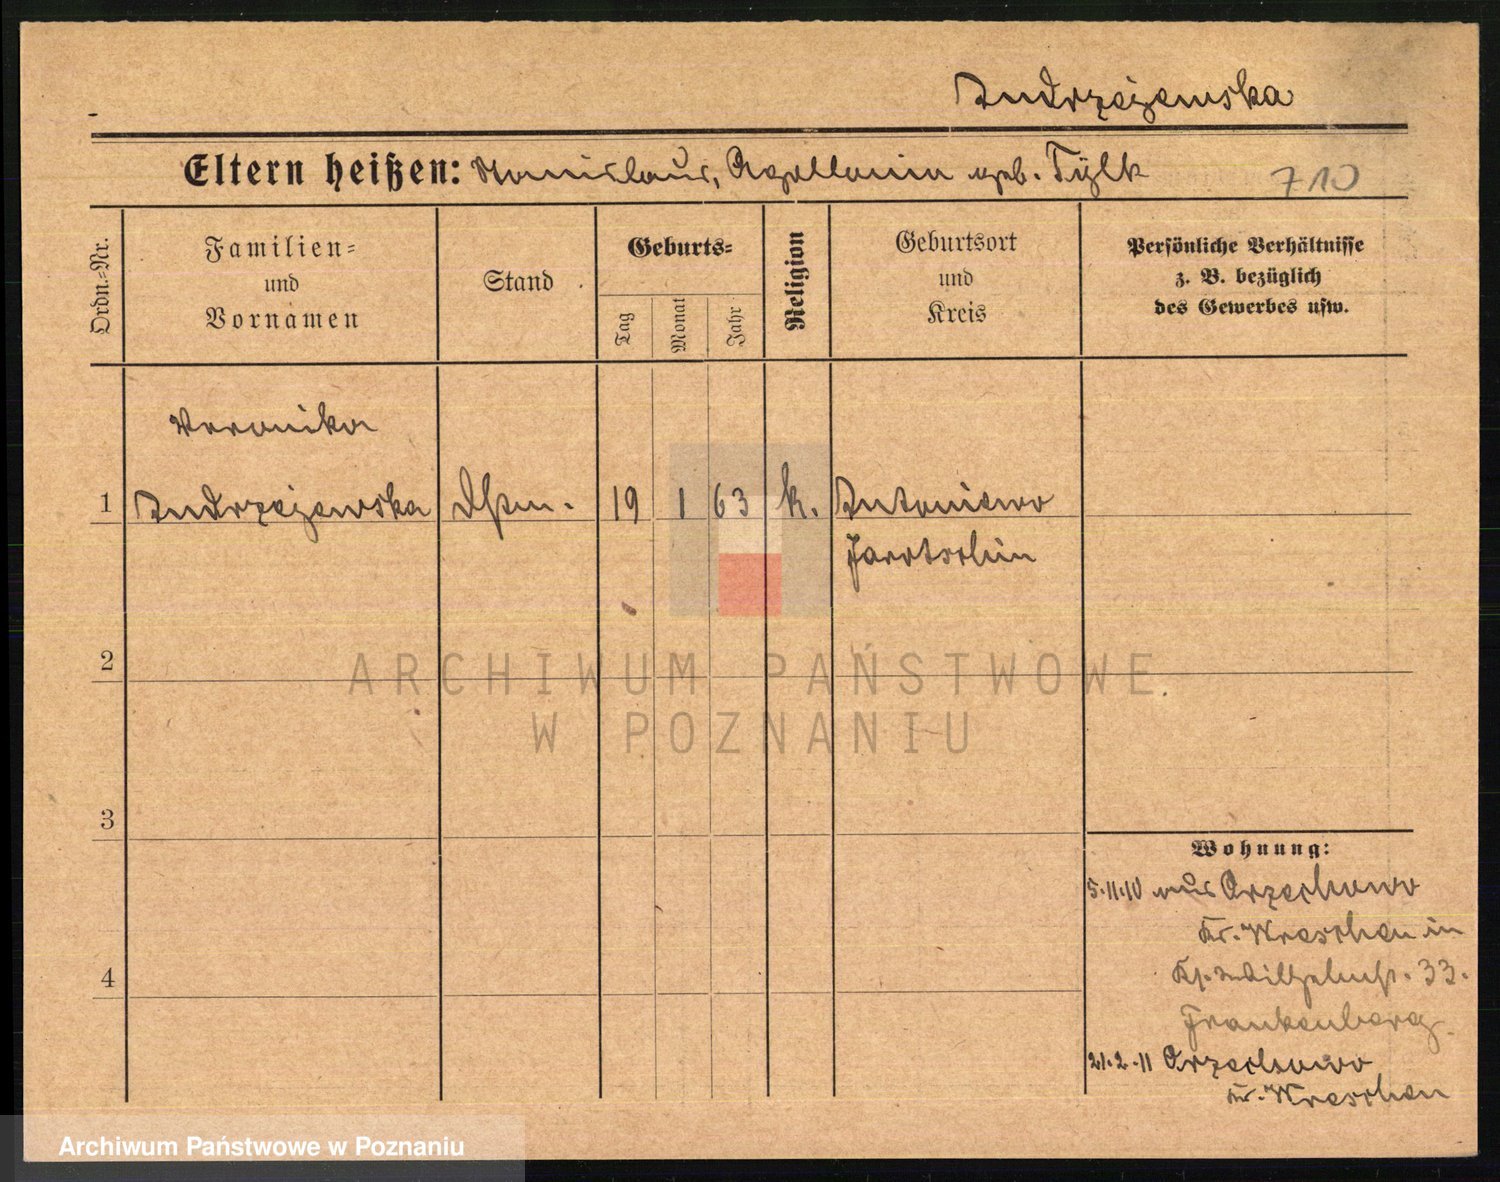 Andrzejewska
Eltern heißen: Stanislaus, Apollonia geb. Tylk
710
Ordn.-Nr.
Familien-
und
Vornamen
Stand
Geburts-
Tag
Monat
Jahr
Religion
Geburtsort
und
Kreis
Persönliche Verhältnisse
z. B. bezüglich
des Gewerbes usw.
Veronika
1 Andrzejewska 19 1 63 k. Antoniewo
Jarotschin
2
ARCHIWUM PAŃSTWOWE
W POZNANIU
3
4
Wohnung:
5.11.10 aus Orzechowo
Kr. Wreschen in
33.
Frankenberg
21.2.11 Orzechowo
Kr. Wreschen
Archiwum Państwowe w Poznaniu